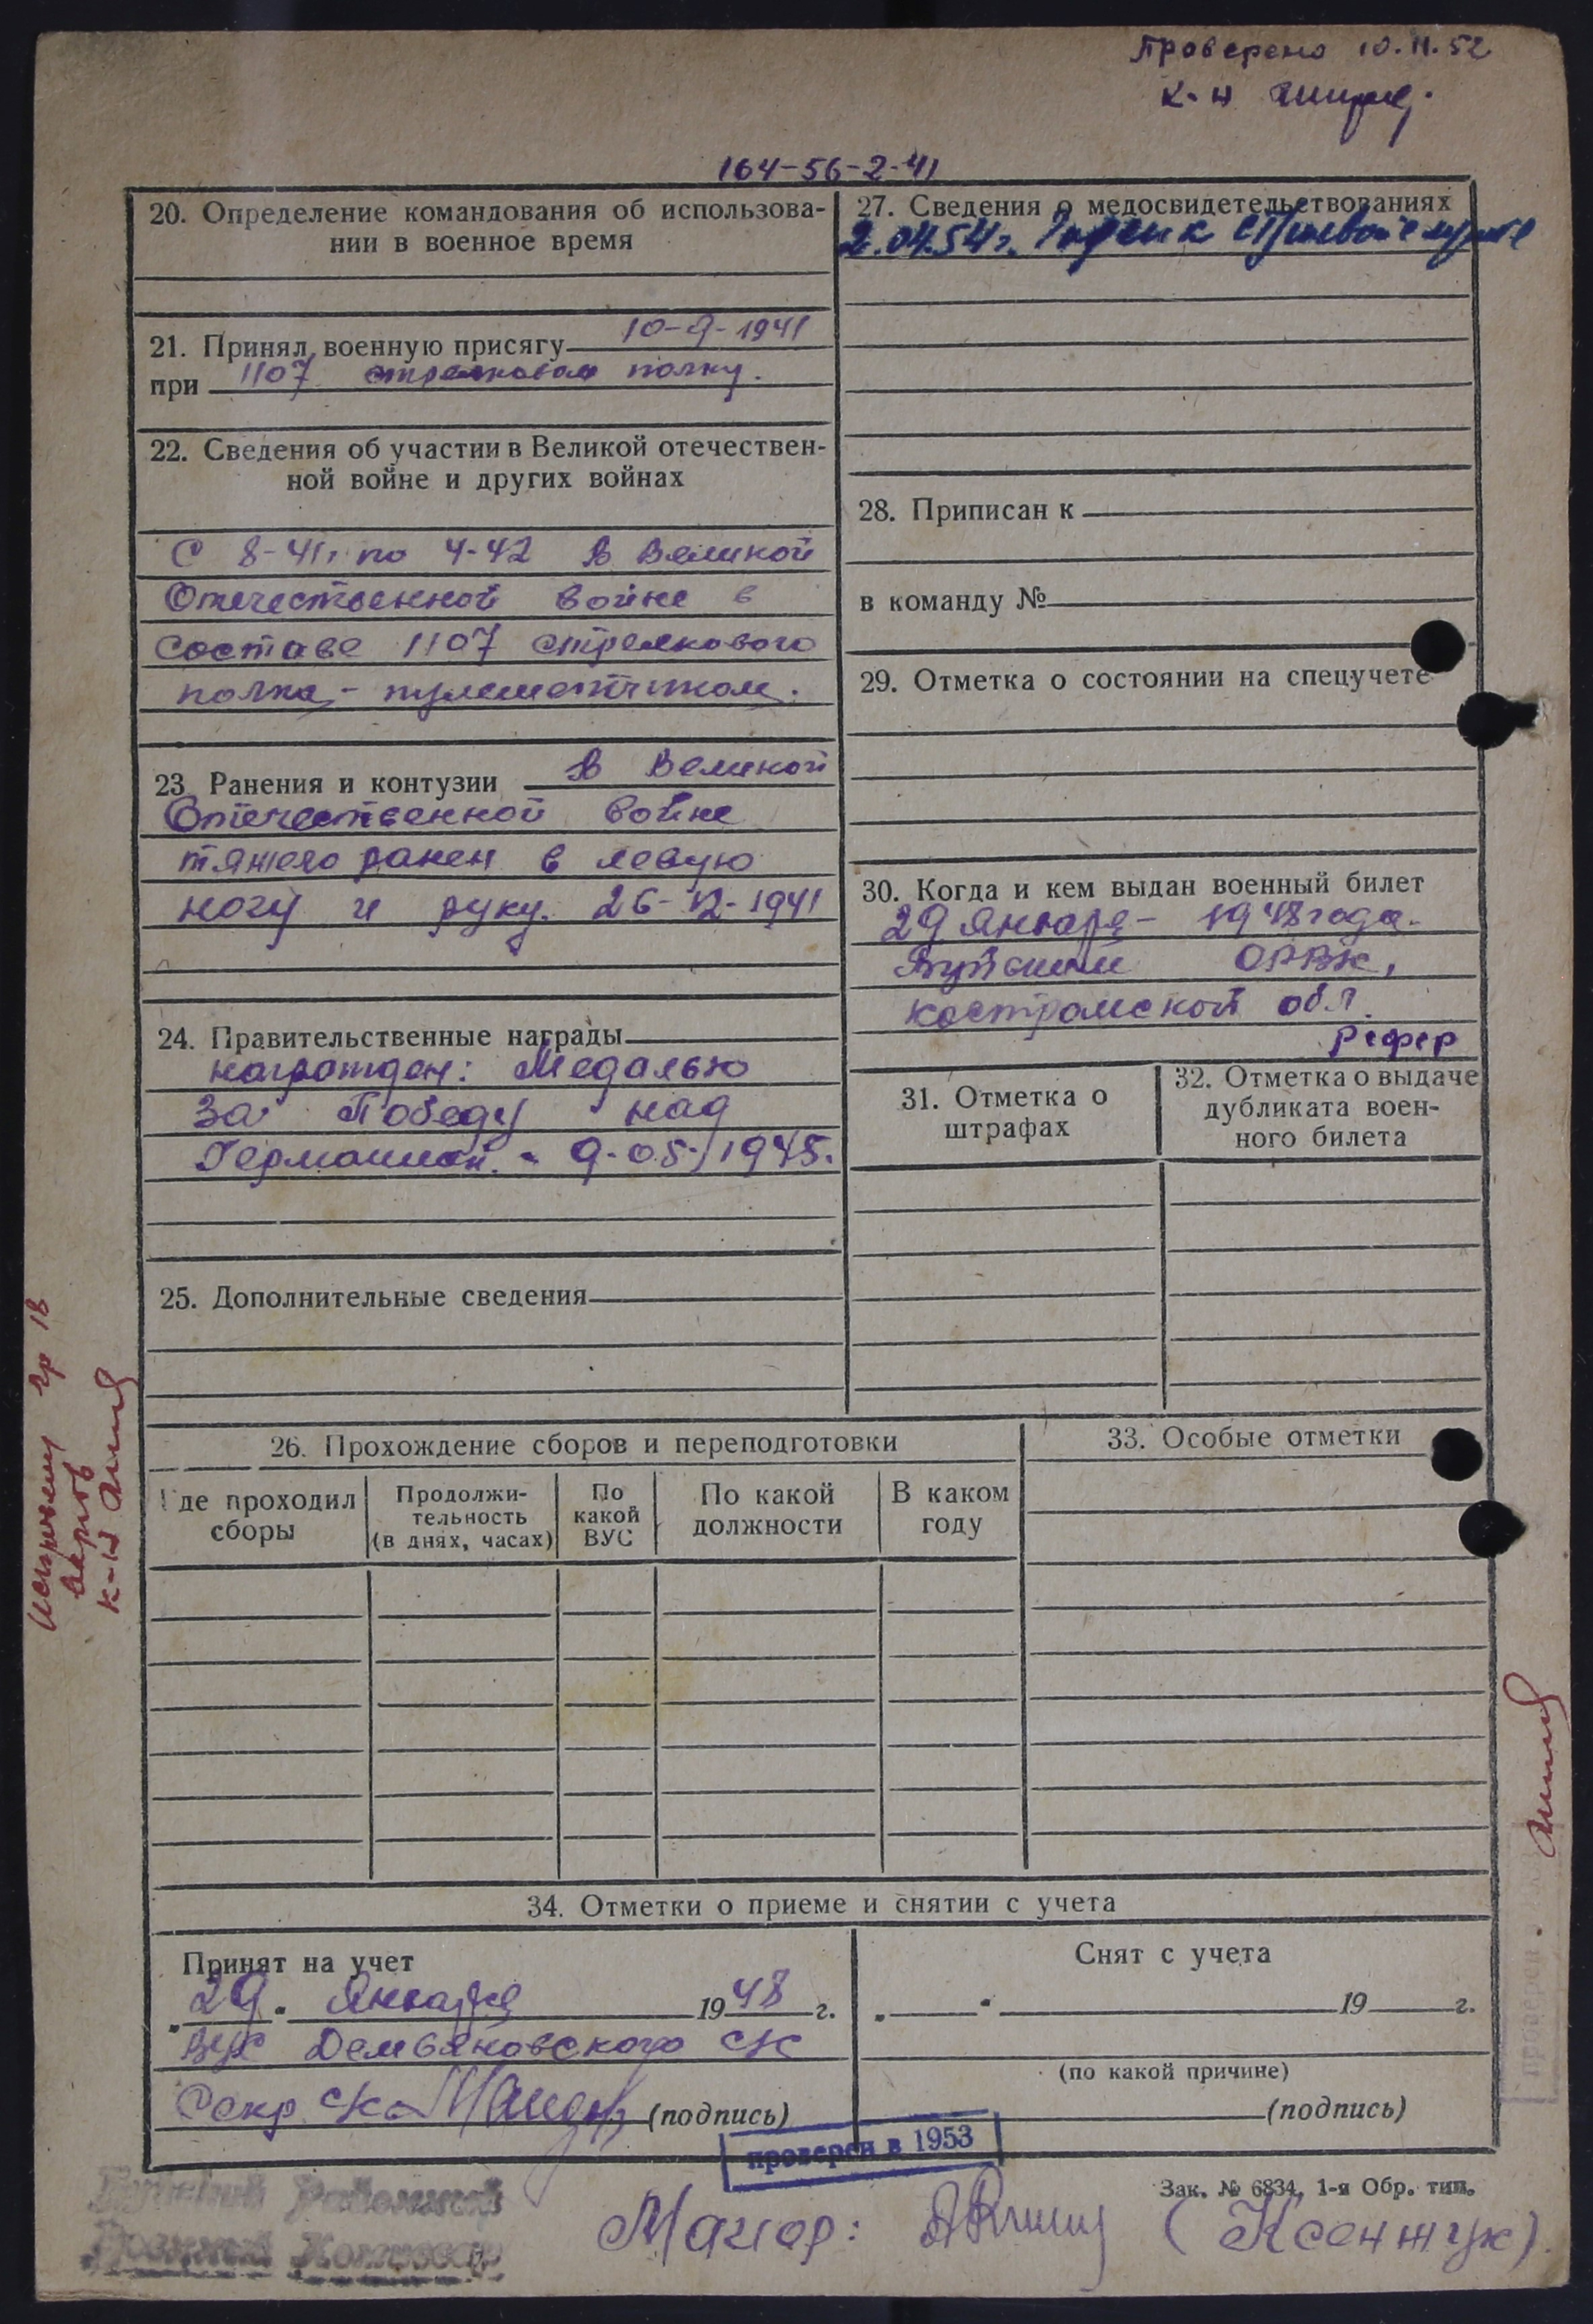 Проверено 10.11.52
к-н
164-56-2-41
20. Определение командования об использова-
нии в военное время
21. Принял военную присягу 10-9-1941
при 1107 стрелковом полку.
22. Сведения об участии в Великой отечествен-
ной войне и других войнах
С 8-41г. по 4-42 в Великой
Отечественной войне в
составе 1107 стрелкового
полка - пулеметчиком.
23 Ранения и контузии в Великой
Отечественной войне
тяжело ранен в левую
ногу и руку. 26-12-1941
24. Правительственные награды
награжден: Медалью
За Победу над
Германией. - 9-05-1945.
25. Дополнительные сведения
27. Сведения о медосвидетельствованиях
2.04.54г. Годен к строевой службе
28. Приписан к
в команду №
29. Отметка о состоянии на спецучете
30. Когда и кем выдан военный билет
29 января - 1948 года.
ОРВК,
костромской обл.
31. Отметка о
штрафах
32. Отметка о выдаче
дубликата воен-
ного билета
26. Прохождение сборов и переподготовки
Где проходил
сборы
Продолжи-
тельность
(в днях, часах)
По
какой
ВУС
По какой
должности
В каком
году
33. Особые отметки
34. Отметки о приеме и снятии с учета
Принят на учет
„29“ Января 1948 г.
ВУС Демьяновского с/с
Секр с/с (подпись)
Снят с учета
„ “ 19 г.
(по какой причине)
(подпись)
проверен в 1953
Зак. № 6834, 1-я Обр. тип.
Майор: (Ксенжук)
Районный
Военный Комиссар
гр 18
к-н
проверен